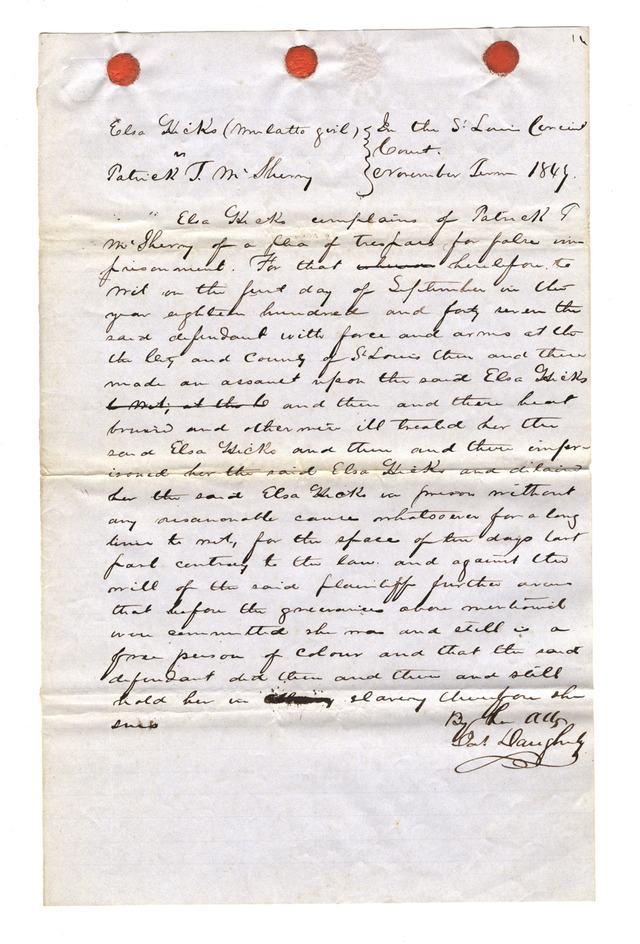 Elsa Hicks (Mulatto girl) } In the St Louis Circuit
vs } Court.
Patrick T. McSherry } November Term 1847.
" " Elsa Hicks complains of Patrick T
McSherry of a plea of trespass for false im-
prisonment. For that heretofore to
wit on the first day of September in the
year eighteen hundred and forty seven the
said defendant with force and arms at the
the City and County of St Louis then and there
made an assault upon the said Elsa Hicks
to wit, at the C and then and there beat
bruised and otherwise ill treated her the
said Elsa Hicks and then and there impri-
isoned her the said Elsa Hicks and detained
her the said Elsa Hicks in prison without
any reasonable cause whatsoever for a long
time to wit, for the space of ten days last
past contrary to the law. and against the
will of the said plaintiff further avers
that before the grievances above mentioned
were committed she was and still is a
free person of colour and that the said
defendant did then and there and still
hold her in slavery therefore she
sues
By her Atty
Pat Daugherty